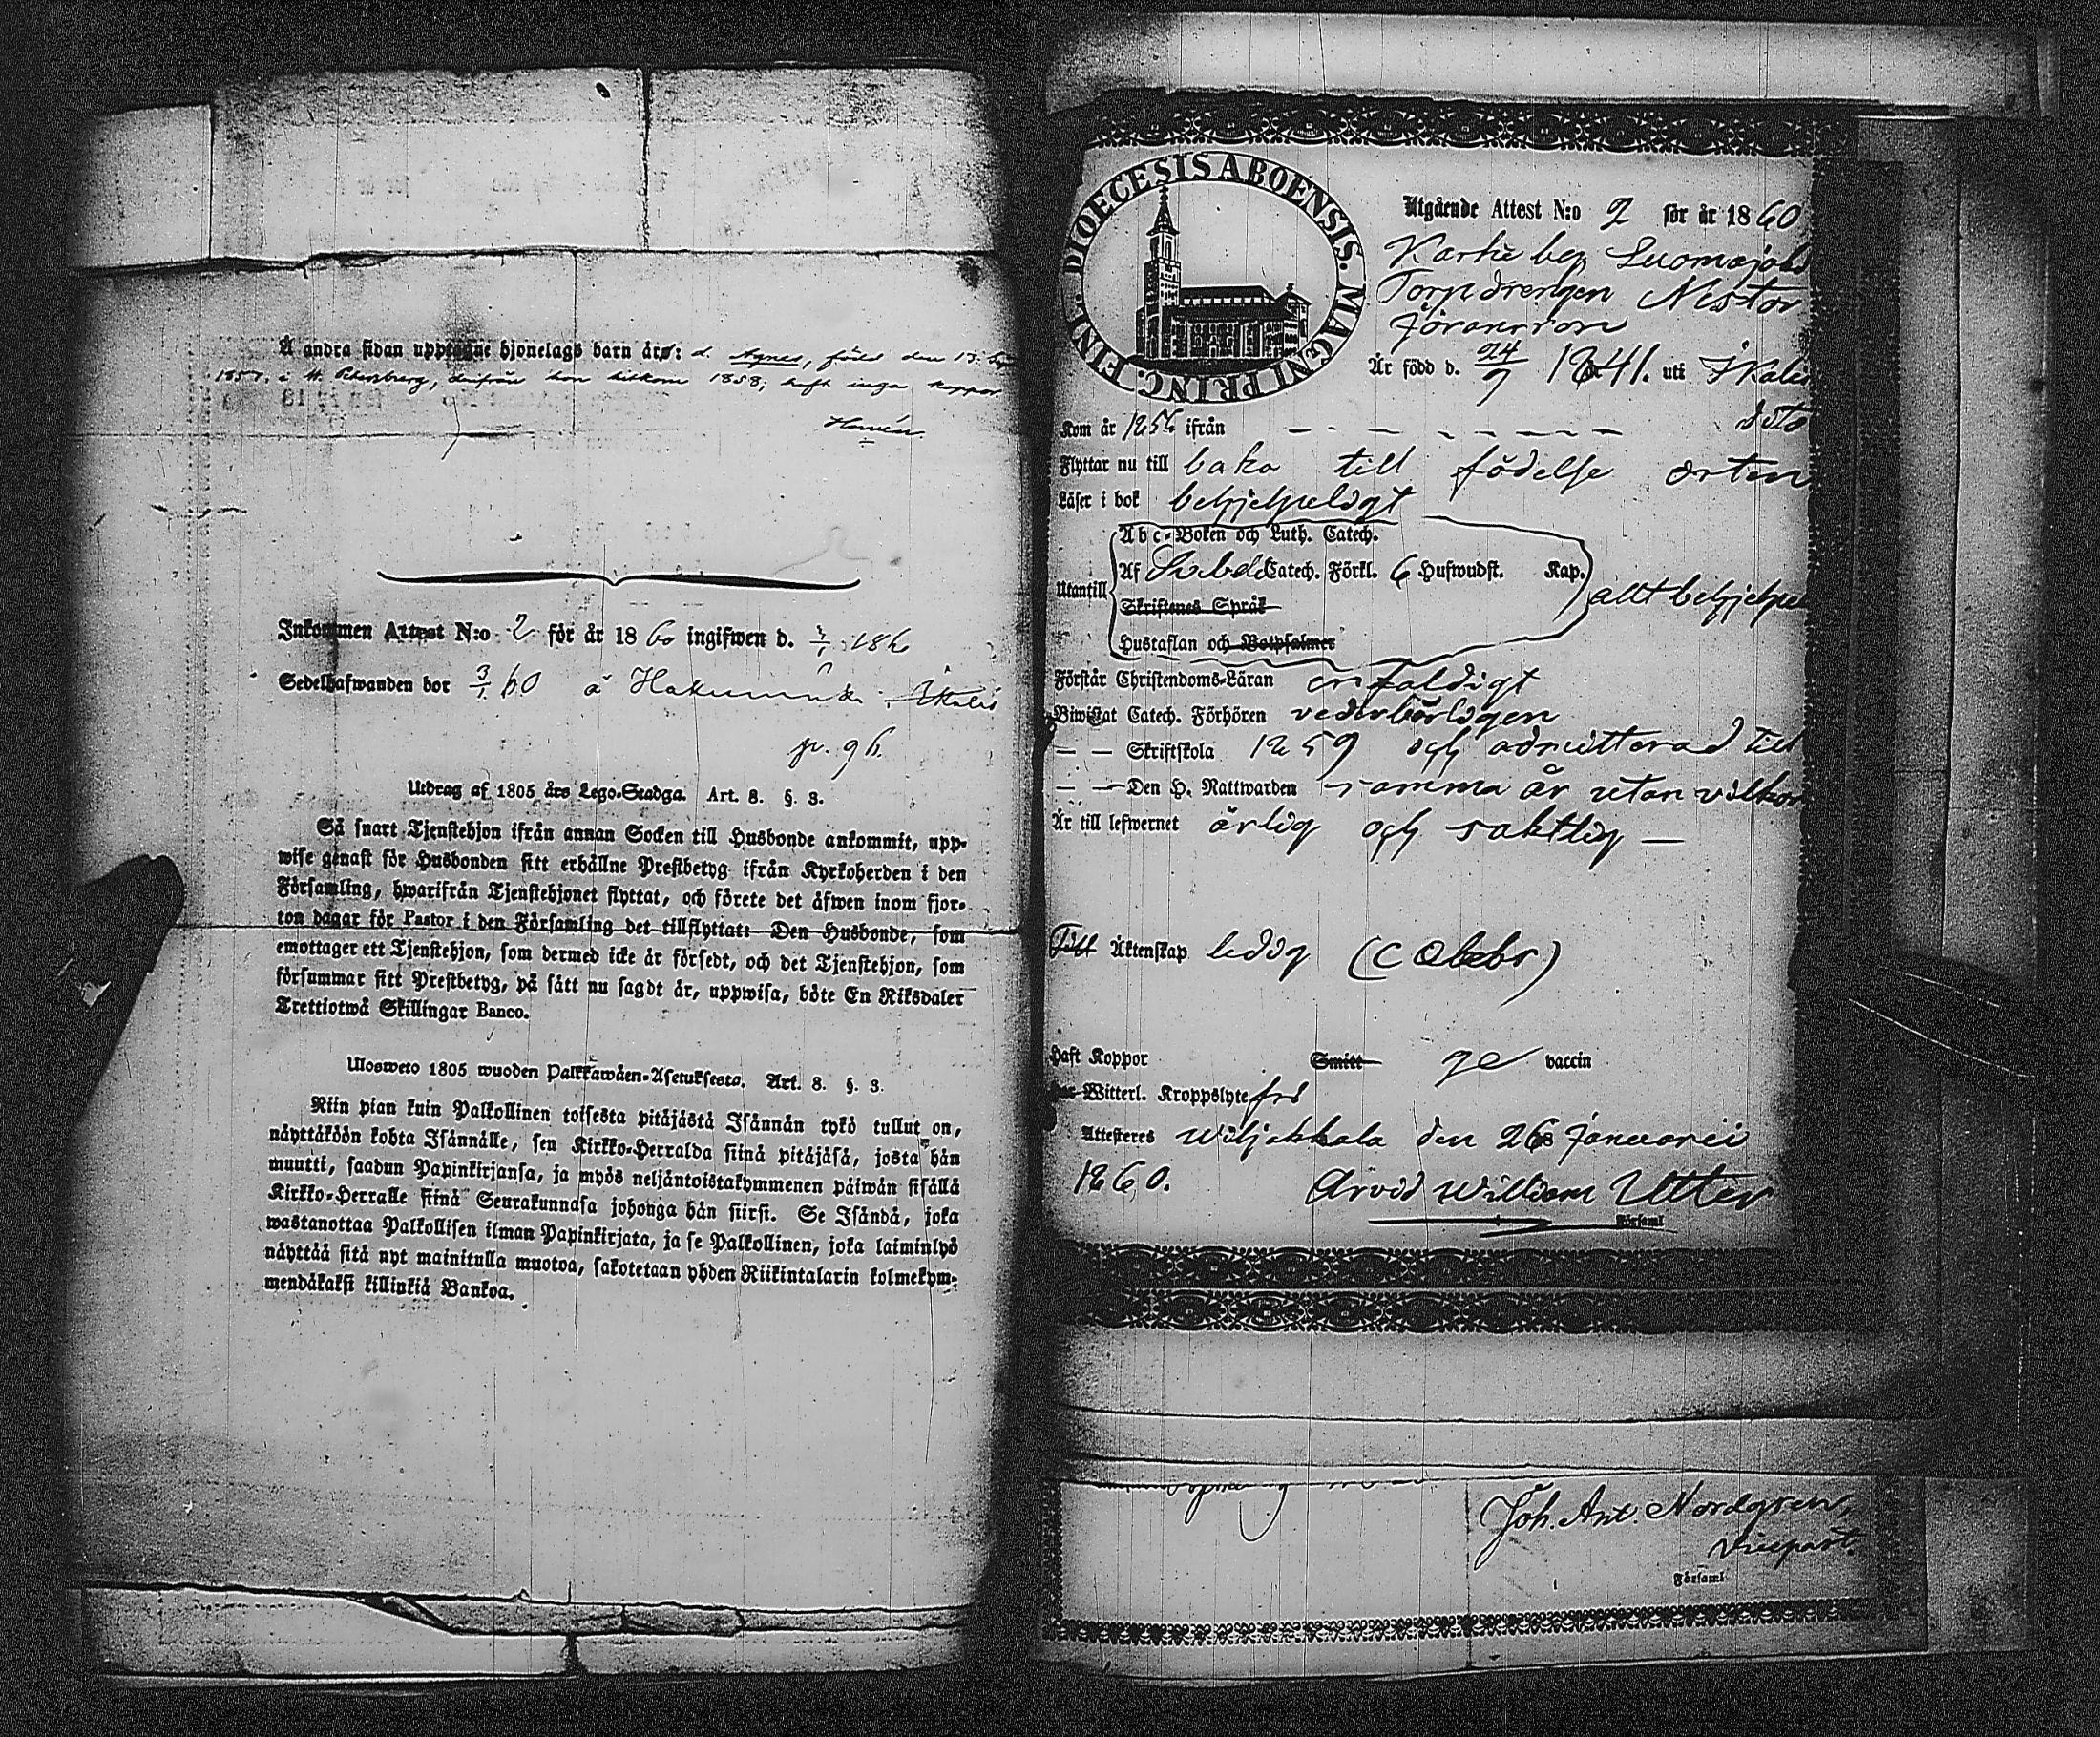 Å andra sidan upptagne hjonelags barn äro: d. Agnes, född den 15.
1857. i St. Petersburg, derifrån hon hitkom 1858; haft inga koppor.
Inkommen Attest N:o 2 för år 1860 ingifwen d.
Sedelhafwanden bor 3/1 60 å Ikalis
p. 96.
Utdrag af 1805 års Lego-Stadga. Art. 8. §. 3.
Så snart Tjenstehjon ifrån annan Socken till Husbonde ankommit, upp-
wise genast för Husbonden sitt erhållne Prestbetyg ifrån Kyrkoherden i den
Församling, hwarifrån Tjenstehjonet flyttat, och förete det äfwen inom fjor-
ton dagar för Pastor i den Församling det tillflyttat: Den Husbonde, som
emottager ett Tjenstehjon, som dermed icke är försedt, och det Tjenstehjon, som
försummar sitt Prestbetyg, på sätt nu sagdt är, uppwisa, böte En Riksdaler
Trettiotwå Skillingar Banco.
Ulosweto 1805 wuoden Palkkawäen-Asetuksesta. Art. 8. §. 3.
Niin pian kuin Palkollinen toisesta pitäjästä Isännän tykö tullut on,
näyttäköön kohta Isännälle, sen Kirkko-Herralda siinä pitäjäsä, josta hän
muutti, saadun Papinkirjansa, ja myös neljäntoistakymmenen päiwän sisällä
Kirkko-Herralle siinä Seurakunnasa johonga hän siirsi. Se Isändä, joka
wastanottaa Palkollisen ilman Papinkirjata, ja se Palkollinen, joka laiminlyö
näyttää sitä nyt mainitulla muotoa, sakotetaan yhden Riikintalarin kolmekym-
mendäkaksi killinkiä Bankoa.
DIOECESIS ABOENSIS. MAGNI PRINC. FINL.
Utgående Attest N:o 2 för år 1860
Torpdrengen Nestor
Göransson
Är född d. 24/9 1841. uti Ikalis
Kom år 1856 ifrån dito
Flyttar nu till baka till födelse orten
Läser i bok behjelpeligt
Abc-Boken och Luth. Catech.
Af Svebelii Catech. Förkl. 6 Hufwudst. Kap.
Utantill allt behjelpel
Skriftenes Språk
Hustaflan och Botpsalmer
Förstår Christendoms-Läran enfaldigt
Biwistat Catech. Förhören vederbörligen
— — Skriftskola 1859 och admitterad till
— — Den H. Nattwarden samma år utan vilkor
Är till lefwernet ärlig och saktlig —
Till Äktenskap ledig (Cælebs)
Haft Koppor Smitt ge vaccin
Witterl. Kroppslyte fri
Attesteres Wiljakkala den 26 Januarii
1860. Arvid William Utter
Församl
Joh. Ant. Nordgren,
vicepast.
Församl